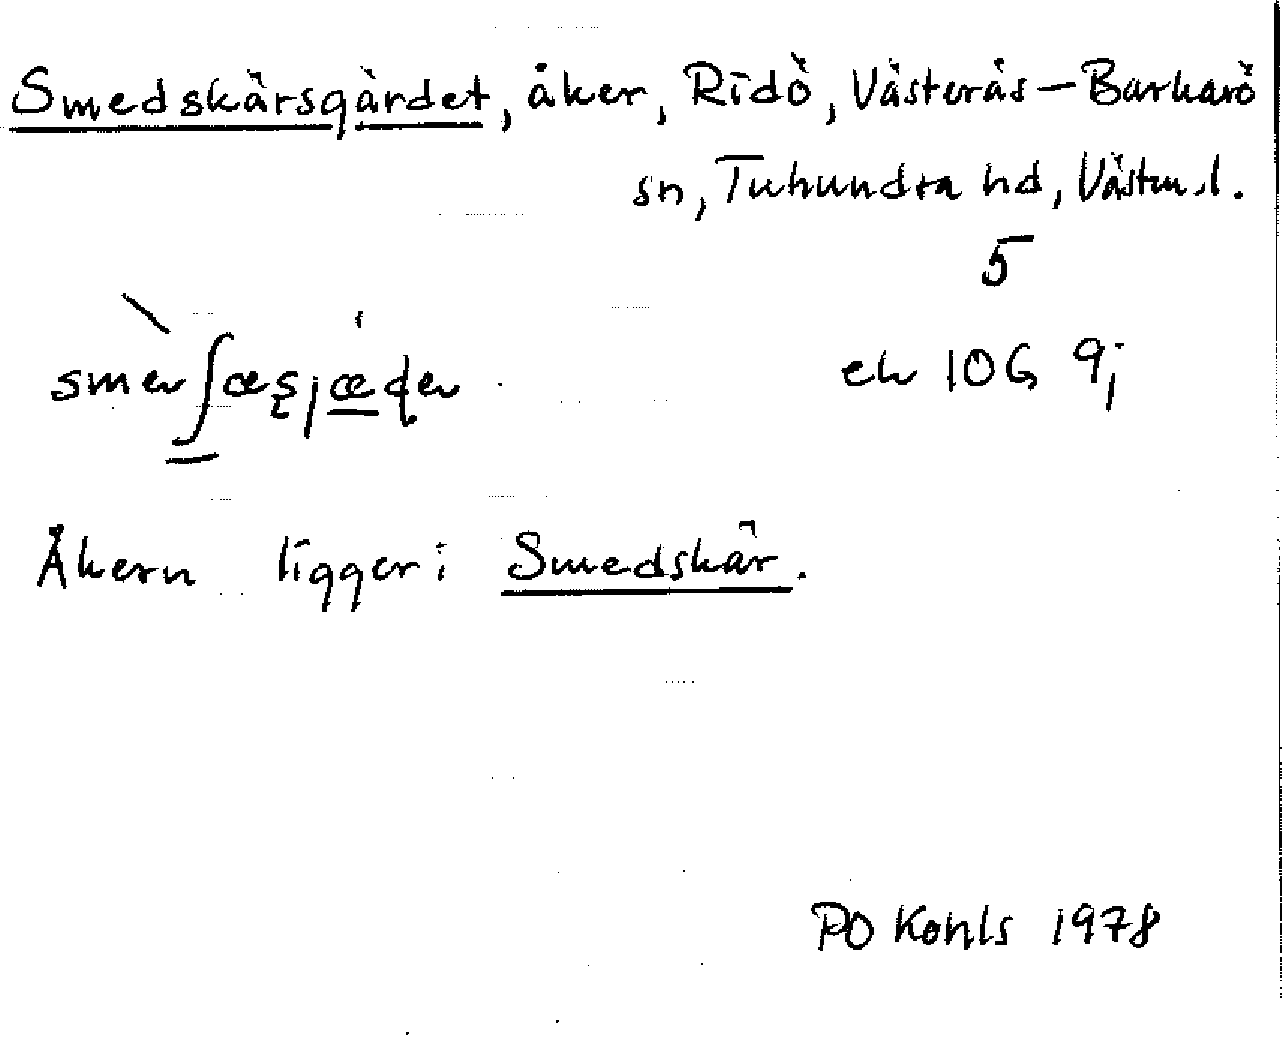 Smedskärsgärdet, åker, Ridö, Västerås-Barkarö
sn, Tuhundra hd, Västm.l.
5
ek 10G 9j
Åkern ligger i Smedskär.
PO Kohls 1978